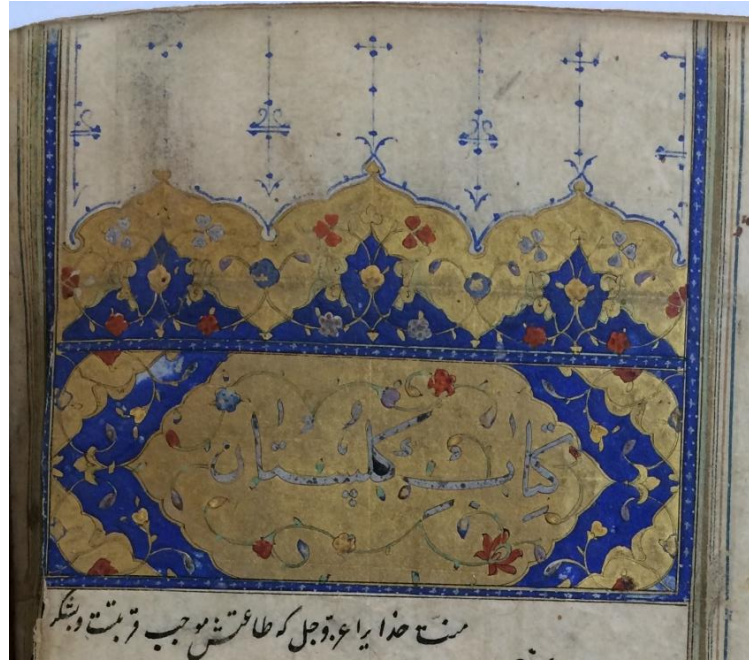 کتاب گلستان
منت خدایرا عزوجل که طاعتش موجب قربتست وبشکر